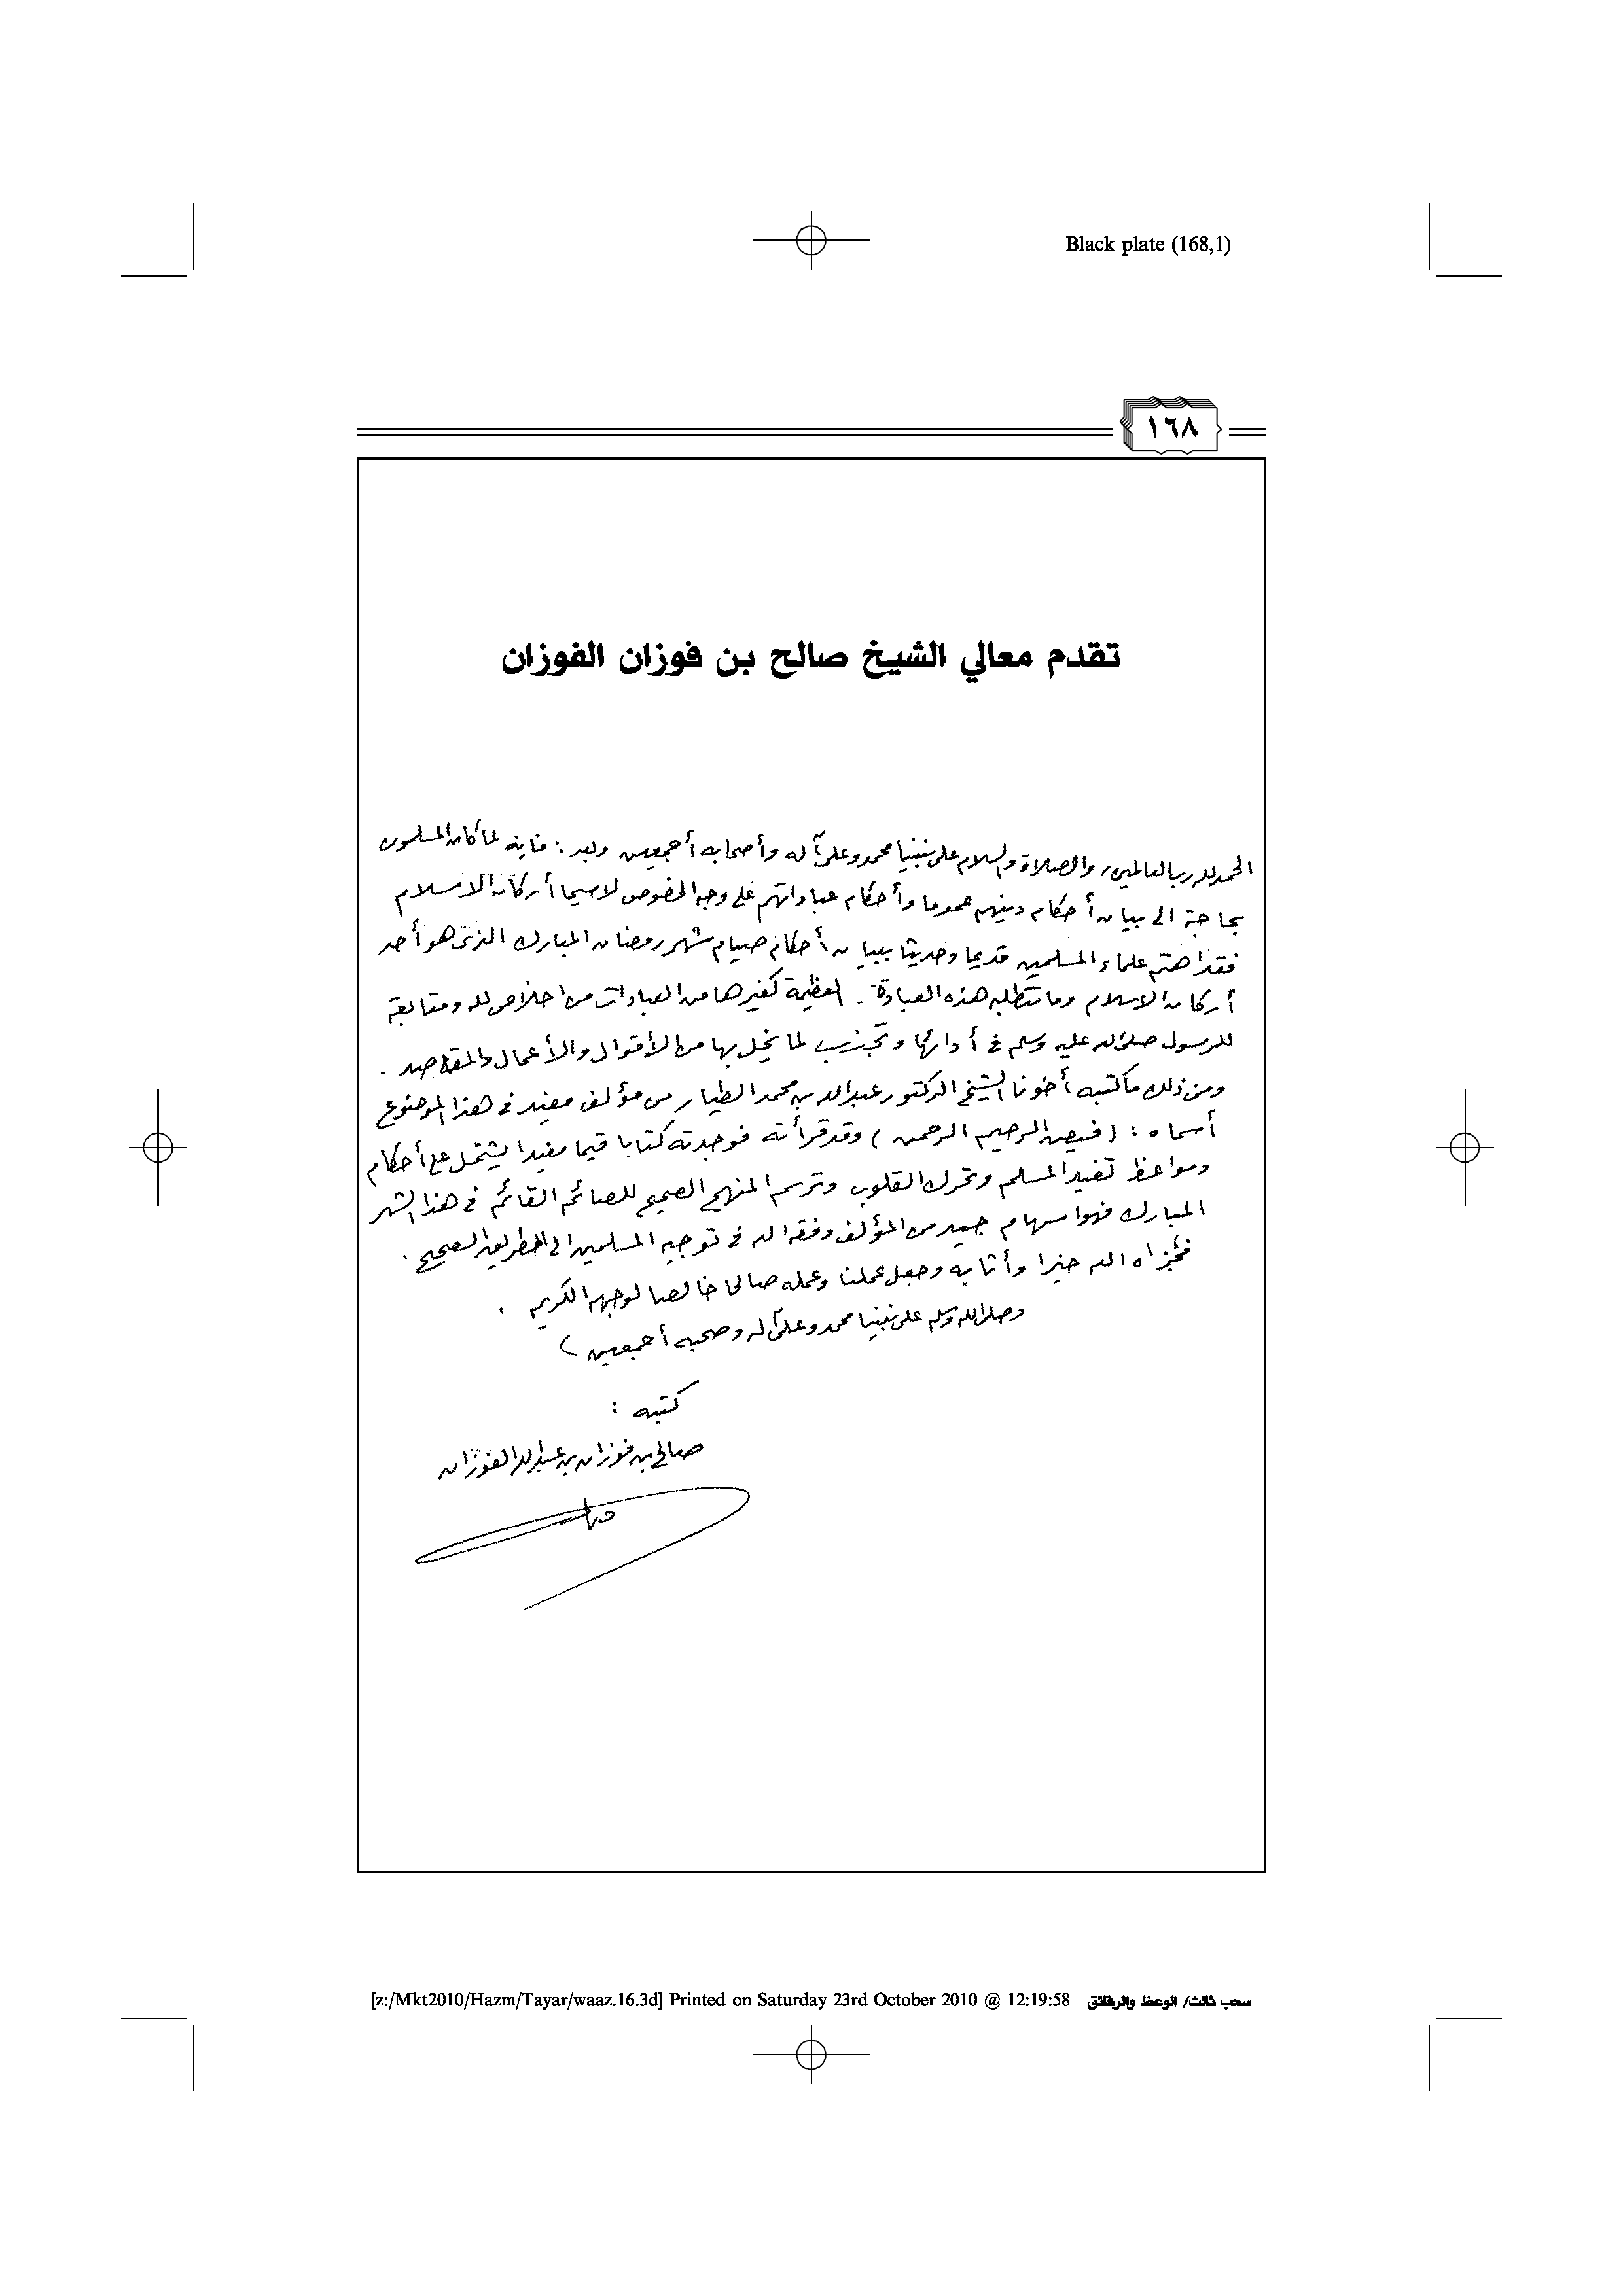 Black plate (168,1)
١٦٨
تقدم معالي الشيخ صالح بن فوزان الفوزان
الحمد لله رب العالمين، والصلاة والسلام على نبينا محمد وعلى آله وأصحابه أجمعين وبعد: فإنه لما كان المسلمون
بحاجة الى بيان أحكام دينهم عموما وأحكام عباداتهم على وجه الخصوص لاسيما أركان الاسلام
فقد اهتم علماء المسلمين قديما وحديثا ببيان أحكام صيام شهر رمضان المبارك الذي هو أحد
أركان الاسلام وما تتطلبه هذه العبادة العظيمة كغيرها من العبادات من اخلاص لله ومتابعة
للرسول صلى الله عليه وسلم في أدائها وتجنب لما يخل بها من الأقوال والأعمال والمقاصد .
ومن ذلك ما كتبه أخونا الشيخ الدكتور عبد الله بن محمد الطيار من مؤلف مفيد في هذا الموضوع
أسماه : (فيض الرحيم الرحمن) وقد قرأته فوجدته كتابا قيما مفيدا يشتمل على أحكام
ومواعظ تفيد المسلم وتحرك القلوب وترسم المنهج الصحيح للصائم القائم في هذا الشهر
المبارك فهو اسهام جيد من المؤلف وفقه الله في توجيه المسلمين الى الطريق الصحيح .
فجزاه الله خيرا وأثابه وجعل عملنا وعمله صالحا خالصا لوجهه الكريم .
وصلى الله وسلم على نبينا محمد وعلى آله وصحبه أجمعين )
كتبه :
صالح بن فوزان بن عبد الله الفوزان
[z:/Mkt2010/Hazm/Tayar/waaz.16.3d] Printed on Saturday 23rd October 2010 @ 12:19:58 سحب ثالث/ الوعظ والرقائق